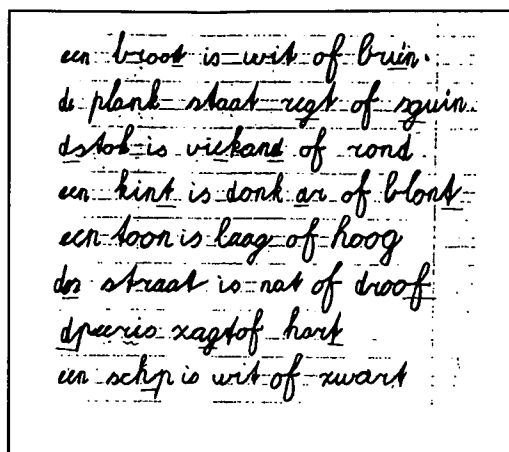 een broot is wit of bruin.
de plank staat regt of sguin.
dstok is viekand of rond
een kint is donk ar of blont
een toon is laag of hoog
des straat is nat of droof
dpeeris zagtof hart
een schp is wit of zwart